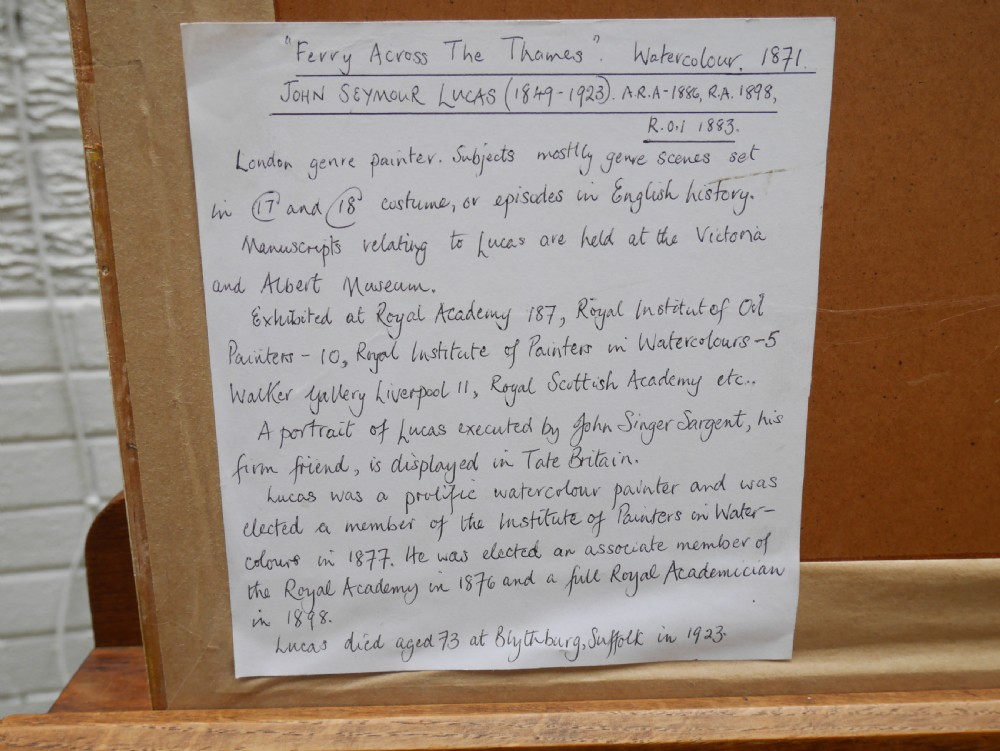 "Ferry Across The Thames". Watercolour. 1871.
JOHN SEYMOUR LUCAS (1849-1923). A.R.A-1886, R.A. 1898,
R.O.I 1883.
London genre painter. Subjects mostly genre scenes set
in 17 and 18 costume, or episodes in English history.
Manuscripts relating to Lucas are held at the Victoria
and Albert Museum.
Exhibited at Royal Academy 187, Royal Institut of Oil
Painters - 10, Royal Institute of Painters in Watercolours - 5
Walker Gallery Liverpool 11, Royal Scottish Academy etc..
A portrait of Lucas executed by John Singer Sargent, his
firm friend, is displayed in Tate Britain.
Lucas was a prolific watercolour painter and was
elected a member of the Institute of Painters in Water-
colours in 1877. He was elected an associate member of
the Royal Academy in 1876 and a full Royal Academician
in 1898.
Lucas died aged 73 at Blythburg, Suffolk in 1923.